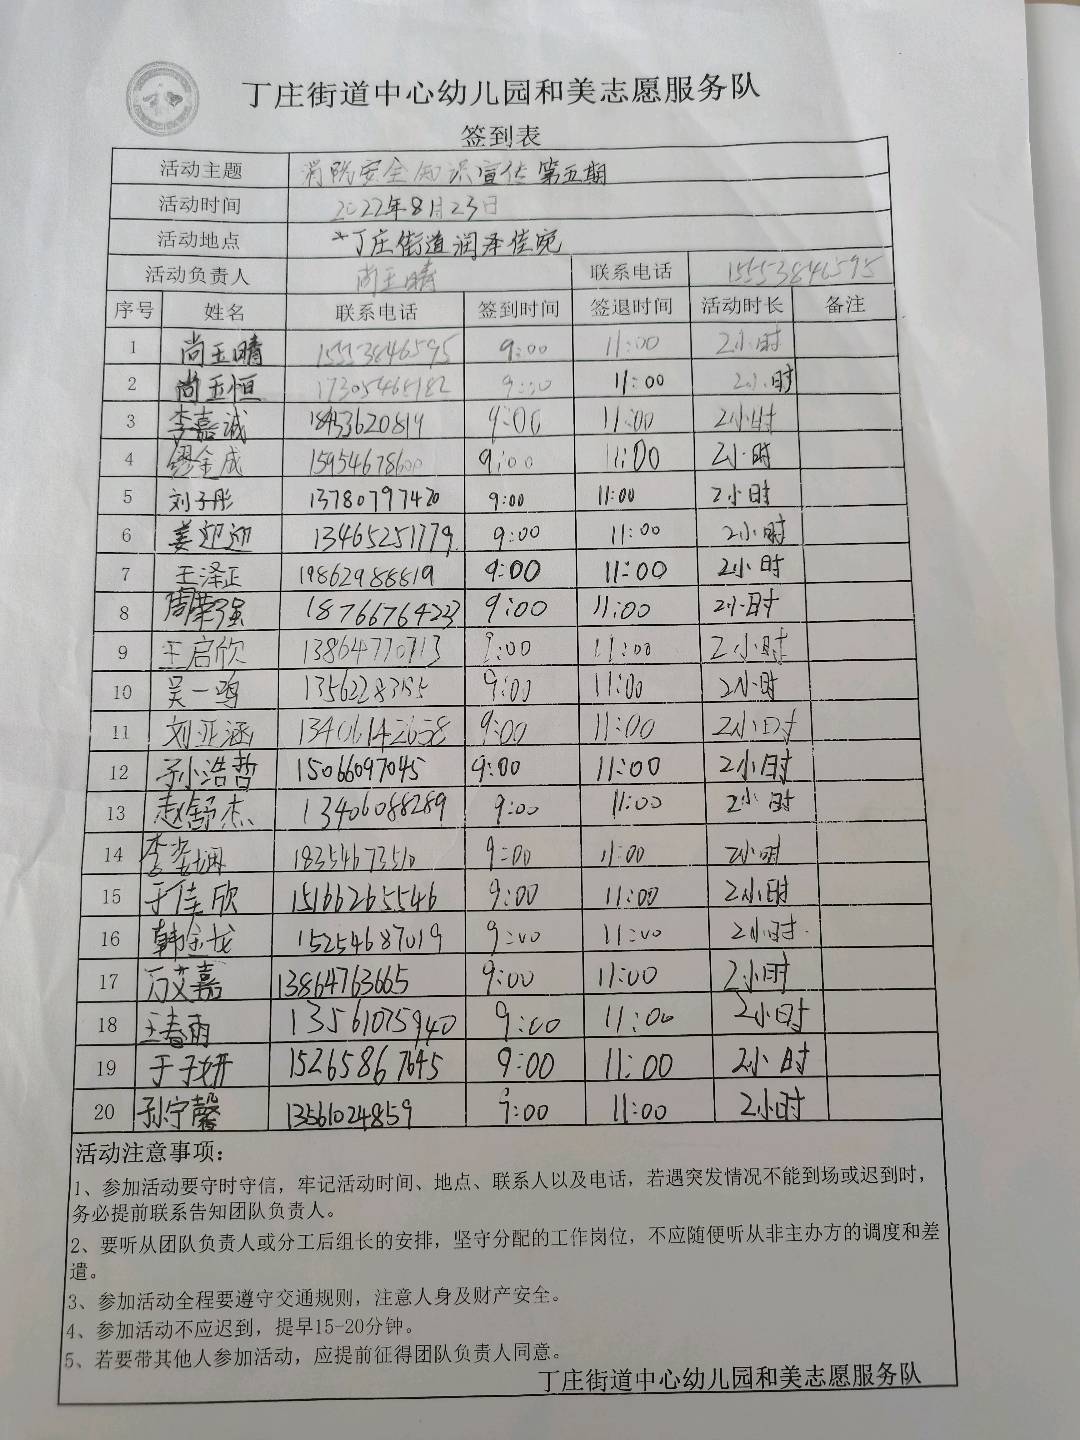 丁庄街道中心幼儿园和美志愿服务队
签到表
活动主题 消防安全知识宣传第五期
活动时间 2022年8月23日
活动地点 丁庄街道润泽佳宛
活动负责人 尚玉晴 联系电话 15553846595
序号 姓名 联系电话 签到时间 签退时间 活动时长 备注
1 尚玉晴 15553846595 9:00 11:00 2小时
2 尚玉恒 17305468182 9:00 11:00 2小时
3 李嘉诚 18453620819 9:00 11:00 2小时
4 缪金成 15954678600 9:00 11:00 2小时
5 刘子彤 13780797420 9:00 11:00 2小时
6 姜迎迎 13465251779 9:00 11:00 2小时
7 王泽正 19862988819 9:00 11:00 2小时
8 周荣强 18766764223 9:00 11:00 2小时
9 王启欣 13864770713 9:00 11:00 2小时
10 吴一鸣 9:00 11:00 2小时
11 刘亚涵 13406142658 9:00 11:00 2小时
12 孙浩哲 15066097045 9:00 11:00 2小时
13 赵舒杰 13406088289 9:00 11:00 2小时
14 李 18354673510 9:00 11:00 2小时
15 于佳欣 15166265546 9:00 11:00 2小时
16 韩金龙 15254687019 9:00 11:00 2小时
17 万艾嘉 13864763665 9:00 11:00 2小时
18 王春雨 13561075940 9:00 11:00 2小时
19 于子妍 15265867645 9:00 11:00 2小时
20 孙宁馨 13561024859 9:00 11:00 2小时
活动注意事项：
1、参加活动要守时守信，牢记活动时间、地点、联系人以及电话，若遇突发情况不能到场或迟到时，
务必提前联系告知团队负责人。
2、要听从团队负责人或分工后组长的安排，坚守分配的工作岗位，不应随便听从非主办方的调度和差
遣。
3、参加活动全程要遵守交通规则，注意人身及财产安全。
4、参加活动不应迟到，提早15-20分钟。
5、若要带其他人参加活动，应提前征得团队负责人同意。
丁庄街道中心幼儿园和美志愿服务队